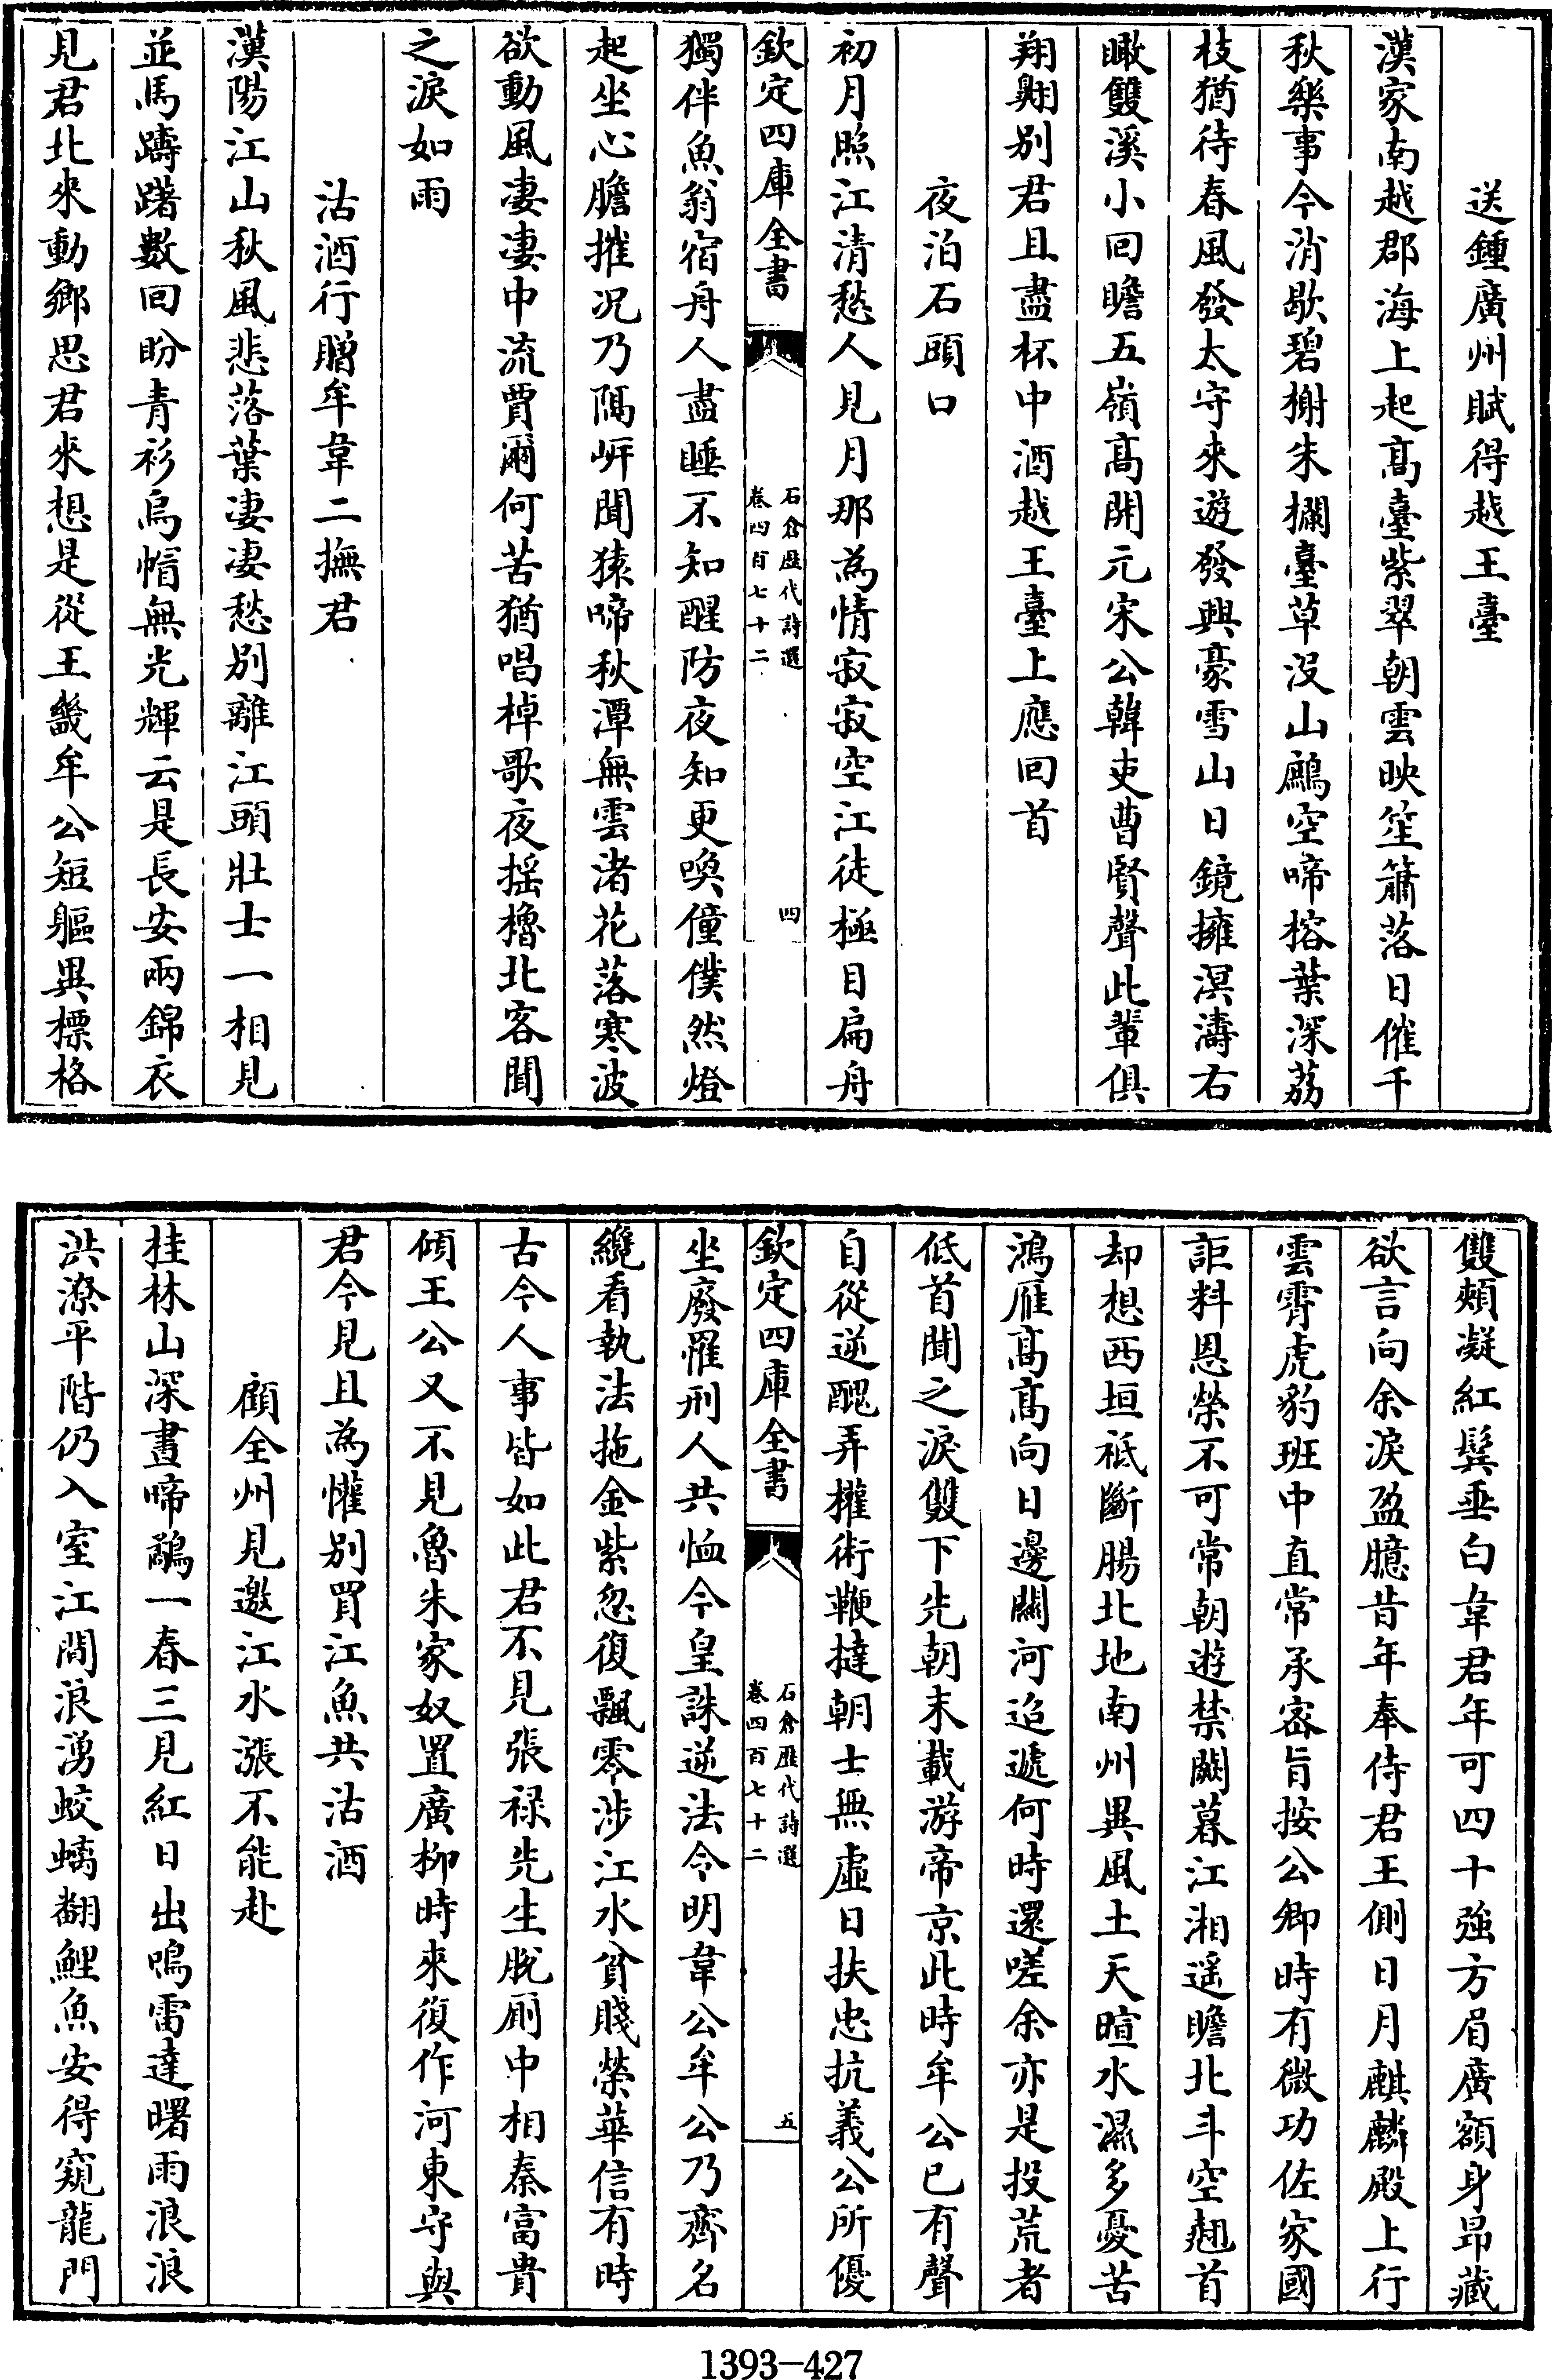 送鍾廣州賦得越王臺
漢家南越郡海上起髙臺紫翠朝雲映笙簫落日催千
秋樂事今消歇碧榭朱欄臺草没山鷓空啼榕葉深荔
枝猶待春風發太守來遊發興豪雪山日鏡擁溟濤右
瞰雙溪小回瞻五嶺髙開元宋公韓吏曹賢聲此輩俱
翔翺别君且盡杯中酒越王臺上應回首
夜泊石頭口
初月照江清愁人見月那為情寂寂空江徒極目扁舟
欽定四庫全書
石倉歷代詩選
卷四百七十二
四
獨伴魚翁宿舟人盡睡不知醒防夜知更喚僮僕然燈
起坐心膽摧况乃隔岍聞猿啼秋潭無雲渚花落寒波
欲動風凄凄中流賈爾何苦猶唱棹歌夜摇櫓北客聞
之淚如雨
沽酒行贈牟韋二撫君
漢陽江山秋風悲落葉凄凄愁别離江頭壯士一相見
並馬躊躇數回盼青衫烏帽無光輝云是長安兩錦衣
見君北來動鄉思君來想是從王畿牟公短軀異標格
雙頰凝紅鬂垂白韋君年可四十強方眉廣額身昻藏
欲言向余淚盈臆昔年奉侍君王側日月麒麟殿上行
雲霄虎豹班中直常承宻旨按公卿時有微功佐家國
詎料恩榮不可常朝遊禁闕暮江湘遥瞻北斗空翹首
却想西垣祗斷腸北地南州異風土天暄水濕多憂苦
鴻雁髙髙向日邊關河迢遞何時還嗟余亦是投荒者
低首聞之淚雙下先朝末載游帝京此時牟公已有聲
自從逆醜弄權術鞭撻朝士無虛日扶忠抗義公所優
欽定四庫全書
石倉歷代詩選
卷四百七十二
五
坐廢罹刑人共恤今皇誅逆法令明韋公牟公乃齊名
纔看執法拖金紫忽復飄零涉江水貧賤榮華信有時
古今人事皆如此君不見張禄先生脱厠中相秦富貴
傾王公又不見魯朱家奴置廣栁時來復作河東守與
君今見且為懽别買江魚共沽酒
顧全州見邀江水漲不能赴
桂林山深晝啼鷸一春三見紅日出鳴雷達曙雨浪浪
洪潦平階仍入室江間浪湧蛟螭翻鯉魚安得窺龍門
1393-427